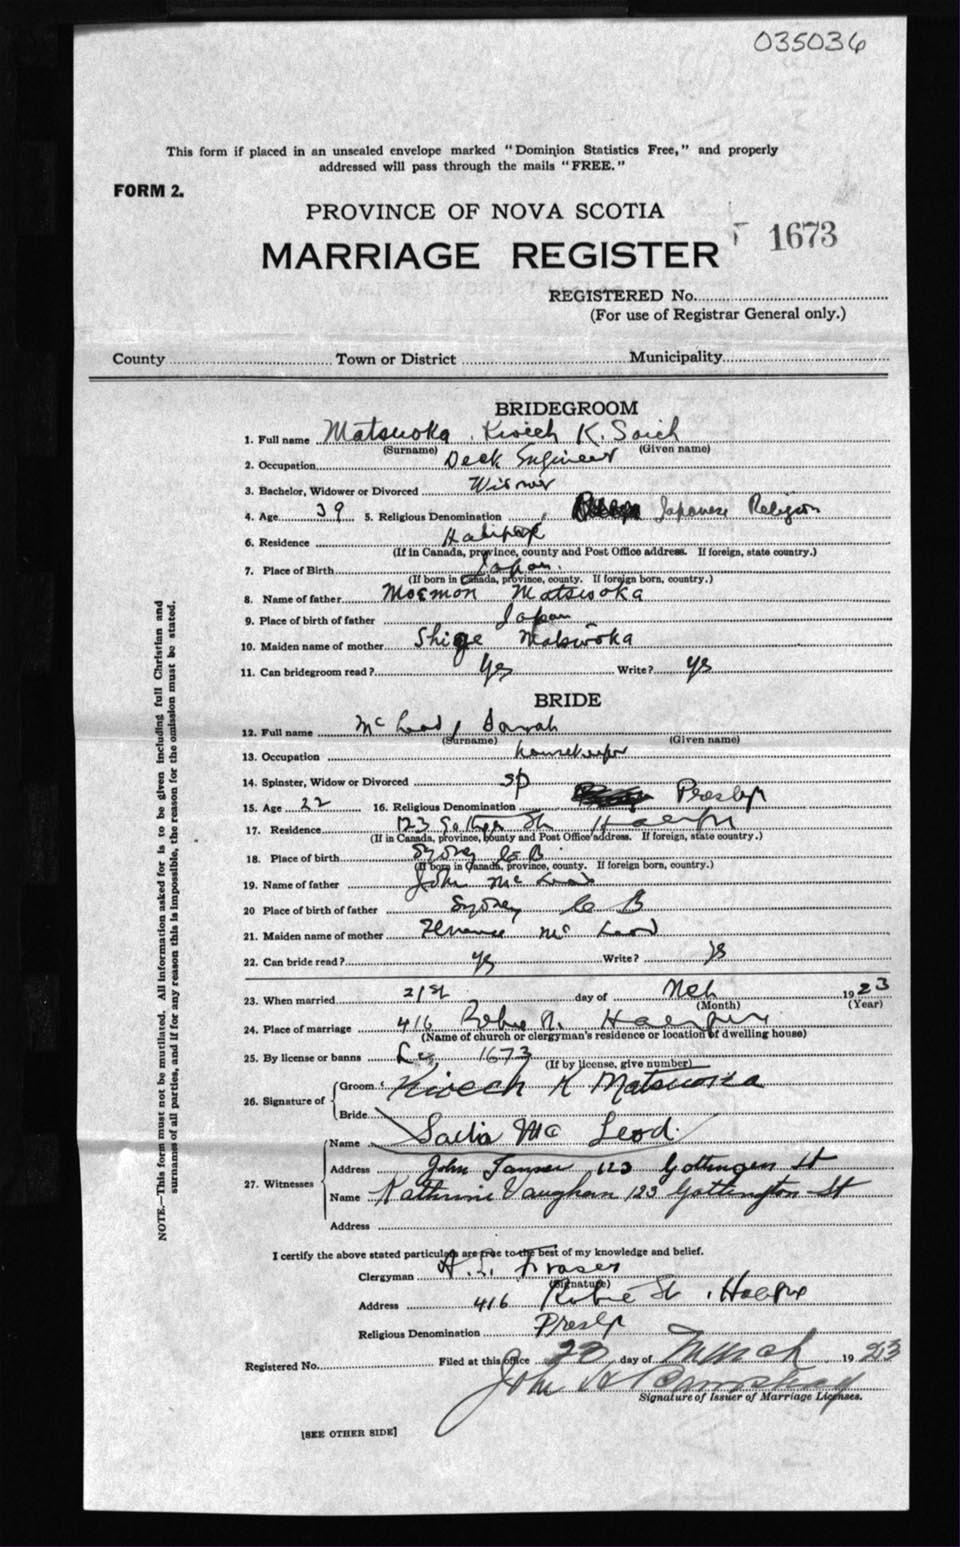 035036
This form if placed in an unsealed envelope marked "Dominion Statistics Free," and properly
addressed will pass through the mails "FREE."
FORM 2.
PROVINCE OF NOVA SCOTIA
1673
MARRIAGE REGISTER
REGISTERED No.
(For use of Registrar General only.)
County Town or District Municipality
BRIDEGROOM
1. Full name Matsuoka K.
(Surname) (Given name)
2. Occupation Deck Engineer
3. Bachelor, Widower or Divorced
4. Age 39 5. Religious Denomination Japanese Religion
6. Residence Halifax
(If in Canada, province, county and Post Office address. If foreign, state country.)
7. Place of Birth Japan.
(If born in Canada, province, county. If foreign born, country.)
8. Name of father Matsuoka
9. Place of birth of father Japan
10. Maiden name of mother Shige Matsuoka
11. Can bridegroom read? Yes Write? Yes
BRIDE
12. Full name McLeod, Sarah
(Surname) (Given name)
13. Occupation housekeeper
14. Spinster, Widow or Divorced sp
15. Age 22 16. Religious Denomination Presbyt
17. Residence 123 St Halifax
(If in Canada, province, county and Post Office address. If foreign, state country.)
18. Place of birth Sydney C B
(If born in Canada, province, county. If foreign born, country.)
19. Name of father John McLeod
20 Place of birth of father Sydney C B
21. Maiden name of mother McLeod
22. Can bride read? Yes Write? Yes
23. When married 21st day of Mch 1923
(Month) (Year)
24. Place of marriage 416 Robie St. Halifax
(Name of church or clergyman's residence or location of dwelling house)
25. By license or banns 1673
(If by license, give number)
26. Signature of
Groom K Matsuoka
Bride Mc Leod.
27. Witnesses
Name
Address John 123 Gottingen St
Name Vaughan 123 Gottington St
Address
I certify the above stated particulars are true to the best of my knowledge and belief.
Clergyman Fraser
(Signature)
Address 416 Robie St, Halifax
Religious Denomination Presby
Registered No. Filed at this office day of March 1923
John A
Signature of Issuer of Marriage Licenses.
[SEE OTHER SIDE]
NOTE.—This form must not be mutilated. All information asked for is to be given including full Christian and
surnames of all parties, and if for any reason this is impossible, the reason for the omission must be stated.